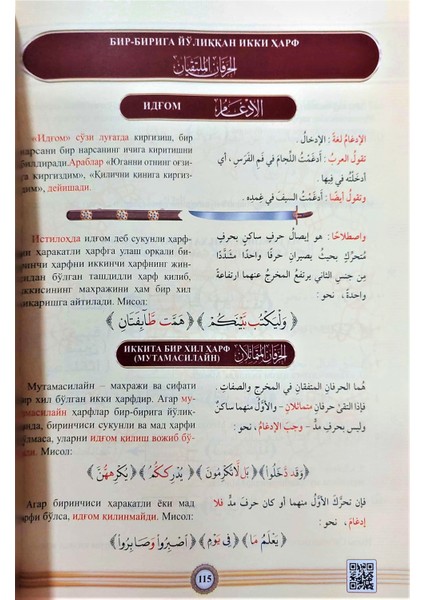 БИР-БИРИГА ЙЎЛИҚҚАН ИККИ ҲАРФ
الحَرفَانِ المُلتَقِيَانِ
ИДҒОМ
الإِدغَامُ
«Идғом» сўзи луғатда киргизиш, бир
нарсани бир нарсанинг ичига киритишни
билдиради. Араблар «Юганни отнинг оғзи-
га киргиздим», «Қилични кинига киргиз-
дим», дейишади.
الإِدغَامُ لُغَةً : الإِدخَالُ .
تَقولُ العَربُ : أَدغَمْتُ اللِّجامَ في فَمِ الفَرَسِ ، أي
أدخَلْتُه في فِيها .
وتَقولُ أيضًا : أدغَمْتُ السيفَ في غِمدِه .
Истилоҳда идғом деб сукунли ҳарф-
ни ҳаракатли ҳарфга улаш орқали би-
ринчи ҳарфни иккинчи ҳарфнинг жин-
сидан бўлган ташдидли ҳарф қилиб,
иккисининг махражини ҳам бир хил
чиқаришга айтилади. Мисол:
واصطِلاحًا : هو إيصالُ حرفٍ ساكنٍ بحرفٍ
مُتحرِّكٍ بحيثُ يصيرانِ حرفًا واحدًا مشدَّدًا
مِن جنسِ الثاني يرتفعُ المخرجُ عنهما ارتفاعةً
واحدةً ، نحو :
﴿وَلْيَكْتُب بَّيْنَكُمْ﴾ ﴿هَمَّت طَّآئِفَتَانِ﴾
ИККИТА БИР ХИЛ ҲАРФ
(МУТАМАСИЛАЙН)
الحَرفَانِ المُتَمَاثِلَانِ
Мутамасилайн – махражи ва сифати
бир хил бўлган икки ҳарфдир. Агар му-
тамасилайн ҳарфлар бир-бирига йўлиқ-
қанда, биринчиси сукунли ва мад ҳарфи
бўлмаса, уларни идғом қилиш вожиб бў-
лади. Мисол:
هُما الحرفانِ المتفقانِ في المخرجِ والصفاتِ .
فإذا التقىٰ حرفانِ متماثلانِ – والأوَّلُ منهما ساكنٌ
وليسَ بحرفِ مدٍّ – وجبَ الإدغامُ ، نحو :
﴿وَقَد دَّخَلُوا﴾ ﴿بَل لَّا تُكْرِمُونَ﴾ ﴿يُدْرِككُّمُ﴾ ﴿يُكْرِههُّنَّ﴾
Агар биринчиси ҳаракатли ёки мад
ҳарфи бўлса, идғом қилинмайди. Мисол:
فإن تحرَّكَ الأوَّلُ منهما أو كان حرفَ مدٍّ فلا
إدغامَ ، نحو :
﴿يَعْلَمُ مَا﴾ ﴿فِى يَوْمٍ﴾ ﴿اصْبِرُواْ وَصَابِرُواْ﴾
115